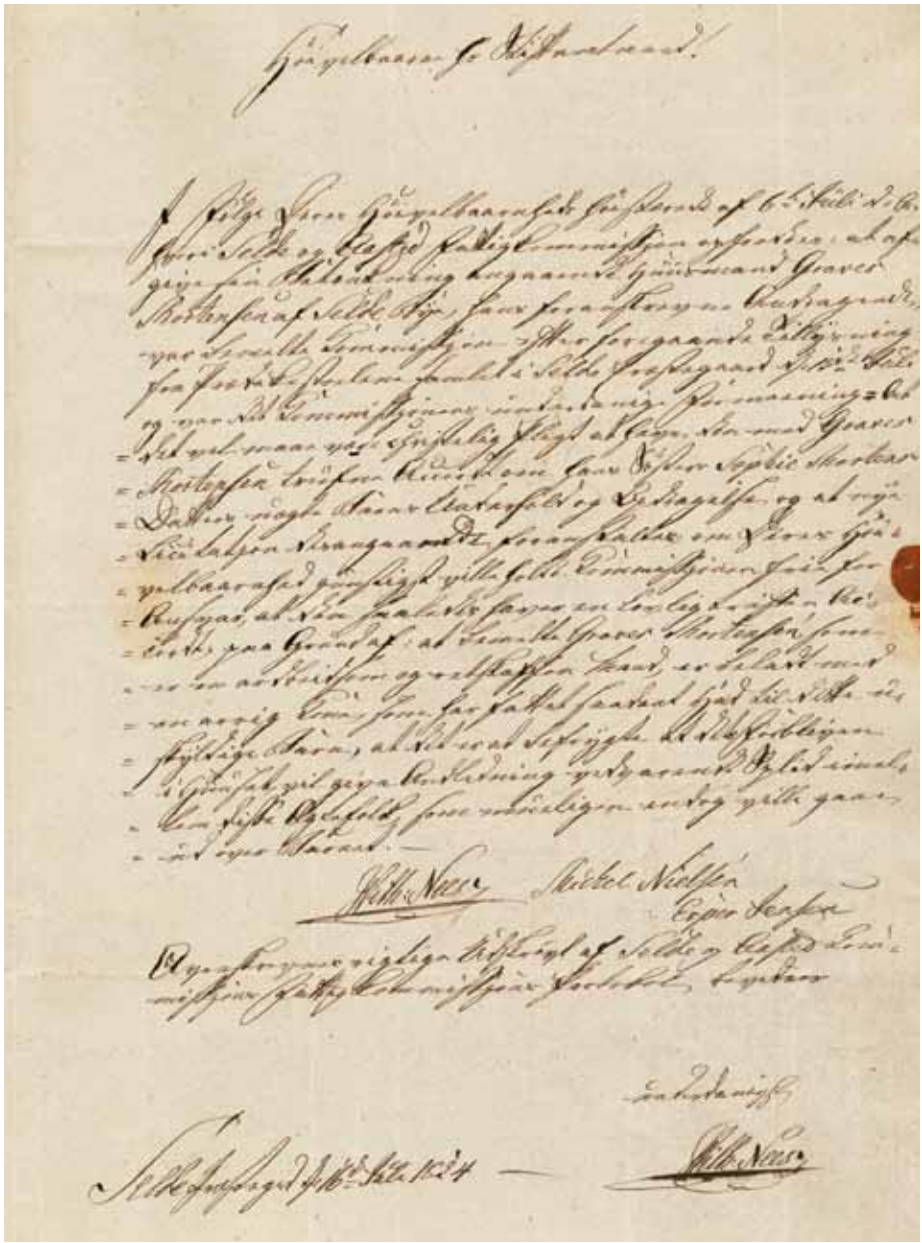 Høivelbaarne Hr Stiftamtmand!
I Følge Deres Høivelbaarnheds Høistærede af 6te Juli d. A.
hvori Selde og Aasted Fattigkommission opfordres, at af-
give sin Betænkning angaaende Huusmand Graves
Mortensen af Selde Bye, hans foranskrevne Andragende,
var bemelte Commission efter foregaaende Tillysning
fra Prædikestolene samlet i Selde Præstegaard d. 15de Juli
og var det Commissionens underdanige Formeening = At
= det vel maae være christelig Pligt at hæve den med Graves
= Mortensen trufne Accord om hans Søsters Sophie Mortens
= Datters uægte Barns Underhold og Opdragelse, og at nye
= Licitation desangaaende foranstaltes om Deres Høi-
= velbaarnhed gunstigst ville holde Commissionen frie for
= Ansvar, at den saaledes hæver en lovlig trufen Ac-
= cord, paa Grund af, at bemelte Graves Mortensen, som
= er en arbeidsom og retskaffen Mand, er beladt med
= en arrig Kone, som har fattet saadant Had til dette u-
= skyldige Barn, at det er at befrygte at dets Forbliven
= i Huuset vil give Anledning vedvarende Splid imel-
= lem disse Ægtefolk, som mueligen endog ville gaae
= ud over Barnet. —
With. Neess Michel Nielsen
Esper Jensen
Overskrevnes rigtige Udskrivt af Selde og Aasted Com-
missions Fattigkommissions Protokol, bevidner
underdanigst
Selde Præstegd d. 16de Juli 1824 — With. Neess